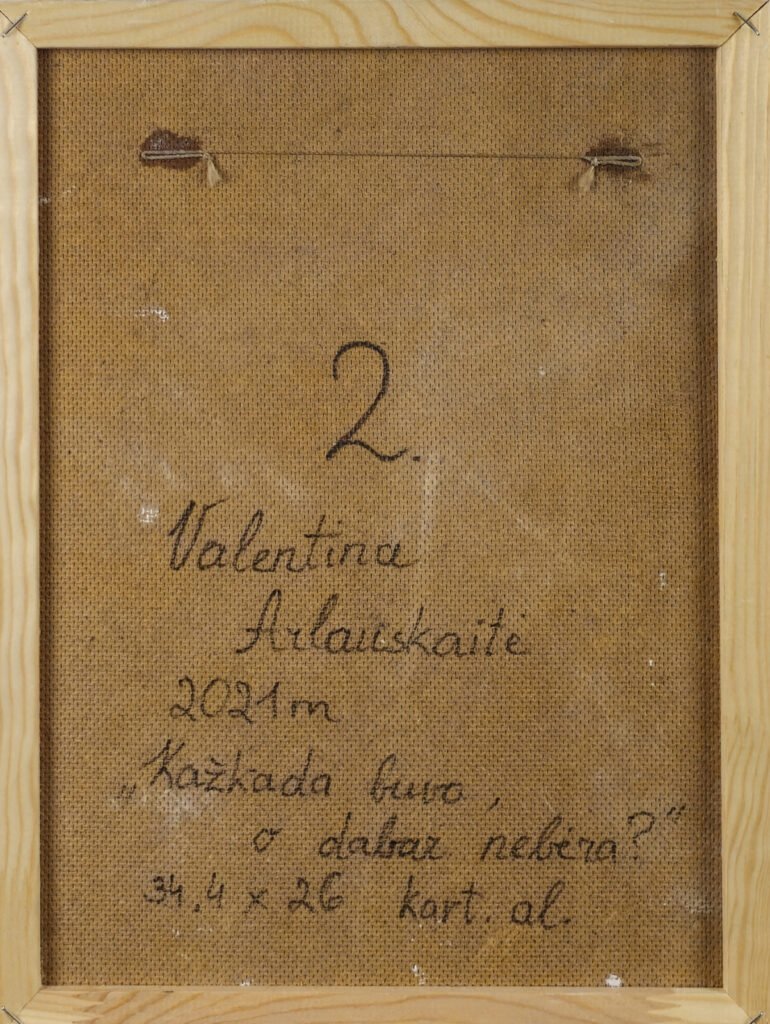 2.
Valentina
Arlauskaitė
2021m
„Kažkada buvo,
o dabar nebėra?“
34,4 x 26 kart. al.